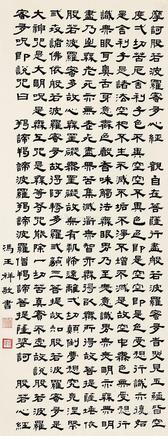 摩訶般若波羅蜜多心經 觀自在菩薩行深般若波羅蜜多時照見五蘊皆空
度一切苦厄舍利子色不異空空不異色色即是空空即是色受想行識亦復如
是舍利子是諸法空相不生不滅不垢不淨不增不減是故空中無色無受想行
識無眼耳鼻舌身意無色聲香味觸法無眼界乃至無意識界無無明亦無無明
盡乃至無老死亦無老死盡無苦集滅道無智亦無得以無所得故菩提薩埵依
般若波羅蜜多故心無罣礙無罣礙故無有恐怖遠離顛倒夢想究竟涅槃
三世諸佛依般若波羅蜜多故得阿耨多羅三藐三菩提故知般若波羅蜜多是
大神咒是大明咒是無上咒是無等等咒能除一切苦真實不虛故說般若波羅
蜜多咒即說咒曰 揭諦揭諦波羅揭諦波羅僧揭諦菩提薩婆訶 般若心經
馮玉祥敬書